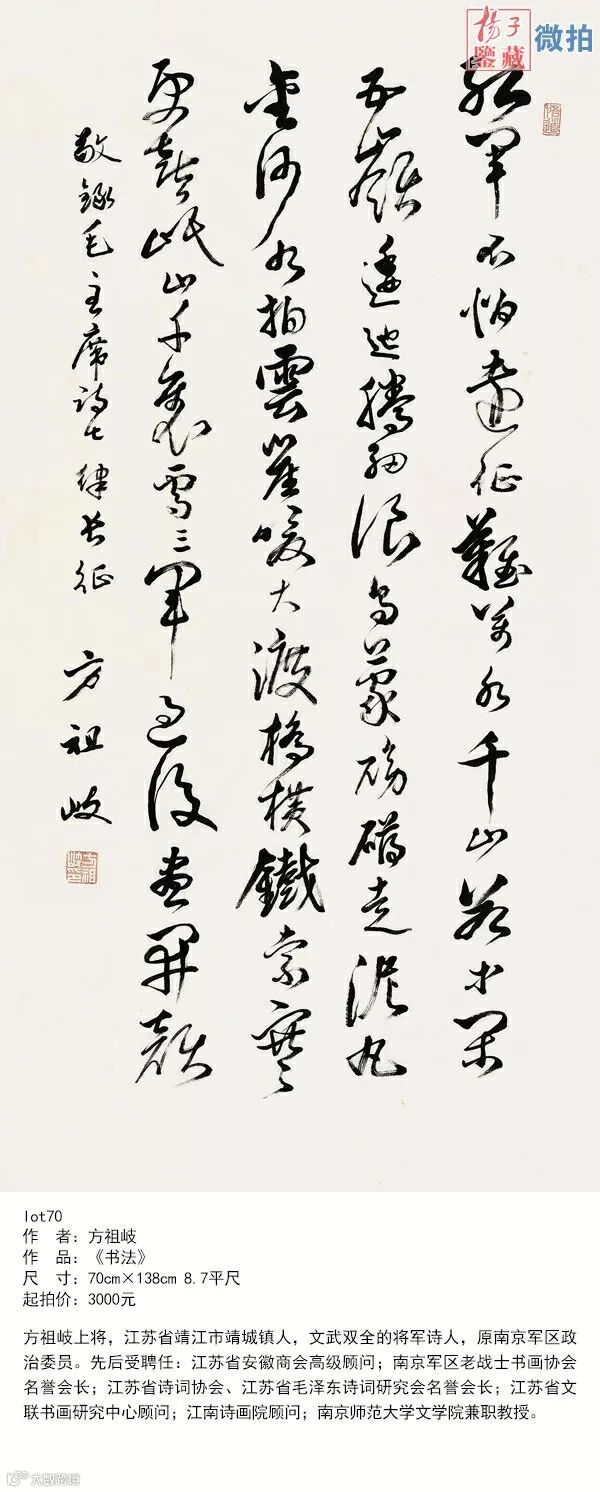 揚子
鑒藏
微拍
紅軍不怕遠征難萬水千山只等閑
五嶺逶迤騰細浪烏蒙磅礴走泥丸
金沙水拍雲崖暖大渡橋橫鐵索寒
更喜岷山千里雪三軍過後盡開顏
敬錄毛主席詩七律長征 方祖岐
lot70
作　者：方祖岐
作　品：《书法》
尺　寸：70cm×138cm 8.7平尺
起拍价：3000元
方祖岐上将，江苏省靖江市靖城镇人，文武双全的将军诗人，原南京军区政
治委员。先后受聘任：江苏省安徽商会高级顾问；南京军区老战士书画协会
名誉会长；江苏省诗词协会、江苏省毛泽东诗词研究会名誉会长；江苏省文
联书画研究中心顾问；江南诗画院顾问；南京师范大学文学院兼职教授。
大数跨境